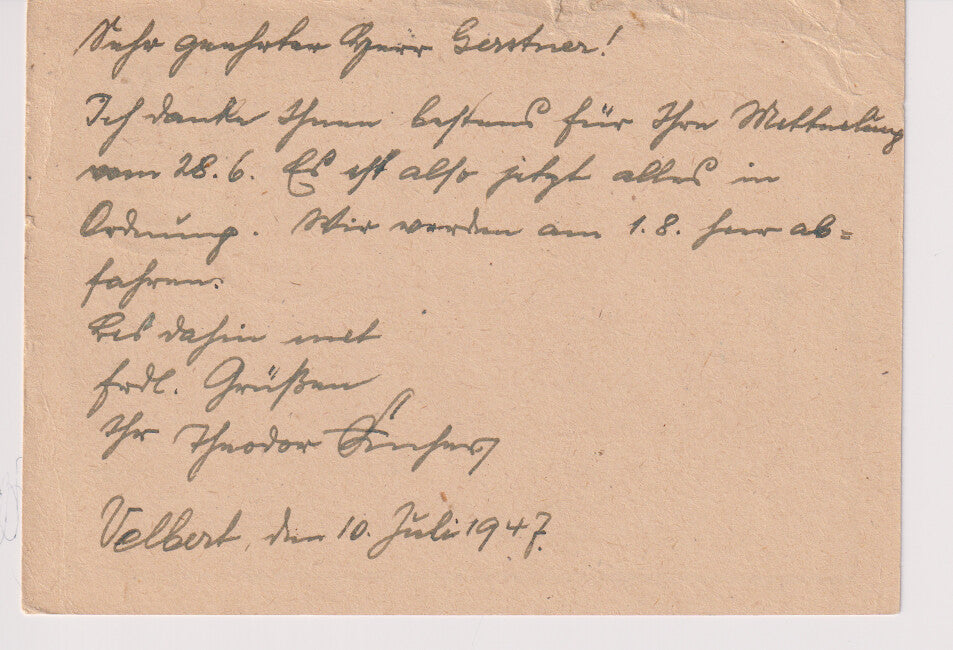 Sehr geehrter Herr Gerstner!
Ich danke Ihnen bestens für Ihre Mitteilung
vom 28.6. Es ist also jetzt alles in
Ordnung. Wir werden am 1.8. hier ab=
fahren.
Bis dahin mit
frdl. Grüßen
Ihr Theodor
Velbert, den 10. Juli 1947.